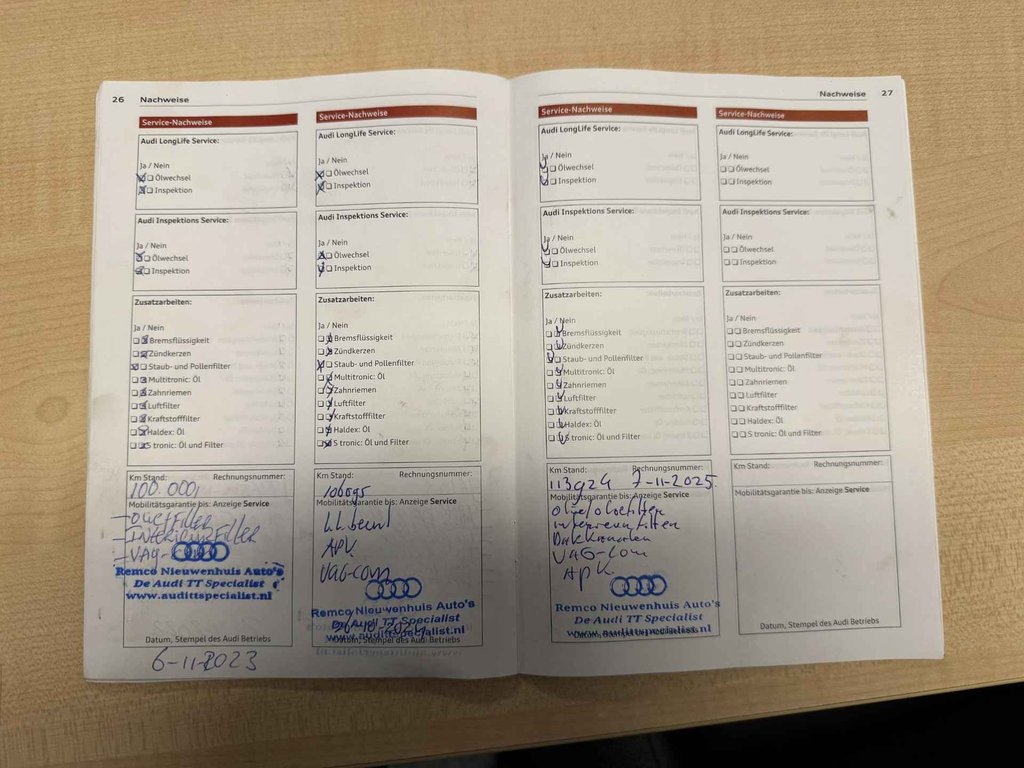 26 Nachweise
Service-Nachweise
Audi LongLife Service:
Ja / Nein
Ölwechsel
Inspektion
Audi Inspektions Service:
Ja / Nein
Ölwechsel
Inspektion
Zusatzarbeiten:
Ja / Nein
Bremsflüssigkeit
Zündkerzen
Staub- und Pollenfilter
Multitronic: Öl
Zahnriemen
Luftfilter
Kraftstofffilter
Haldex: Öl
S tronic: Öl und Filter
Km Stand: Rechnungsnummer:
100.000,
Mobilitätsgarantie bis: Anzeige Service
-VAG-
Remco Nieuwenhuis Auto's
De Audi TT Specialist
www.audittspecialist.nl
Datum, Stempel des Audi Betriebs
6-11-2023
Service-Nachweise
Audi LongLife Service:
Ja / Nein
Ölwechsel
Inspektion
Audi Inspektions Service:
Ja / Nein
Ölwechsel
Inspektion
Zusatzarbeiten:
Ja / Nein
Bremsflüssigkeit
Zündkerzen
Staub- und Pollenfilter
Multitronic: Öl
Zahnriemen
Luftfilter
Kraftstofffilter
Haldex: Öl
S tronic: Öl und Filter
Km Stand: Rechnungsnummer:
Mobilitätsgarantie bis: Anzeige Service
APK
VAG-com
Remco Nieuwenhuis Auto's
De Audi TT Specialist
www.audittspecialist.nl
Datum, Stempel des Audi Betriebs
Nachweise 27
Service-Nachweise
Audi LongLife Service:
Ja / Nein
Ölwechsel
Inspektion
Audi Inspektions Service:
Ja / Nein
Ölwechsel
Inspektion
Zusatzarbeiten:
Ja / Nein
Bremsflüssigkeit
Zündkerzen
Staub- und Pollenfilter
Multitronic: Öl
Zahnriemen
Luftfilter
Kraftstofffilter
Haldex: Öl
S tronic: Öl und Filter
Km Stand: Rechnungsnummer:
113924 7-11-2025
Mobilitätsgarantie bis: Anzeige Service
olie/oliefilter
interieurfilter
VAG-com
APK
Remco Nieuwenhuis Auto's
De Audi TT Specialist
www.audittspecialist.nl
Service-Nachweise
Audi LongLife Service:
Ja / Nein
Ölwechsel
Inspektion
Audi Inspektions Service:
Ja / Nein
Ölwechsel
Inspektion
Zusatzarbeiten:
Ja / Nein
Bremsflüssigkeit
Zündkerzen
Staub- und Pollenfilter
Multitronic: Öl
Zahnriemen
Luftfilter
Kraftstofffilter
Haldex: Öl
S tronic: Öl und Filter
Km Stand: Rechnungsnummer:
Mobilitätsgarantie bis: Anzeige Service
Datum, Stempel des Audi Betriebs